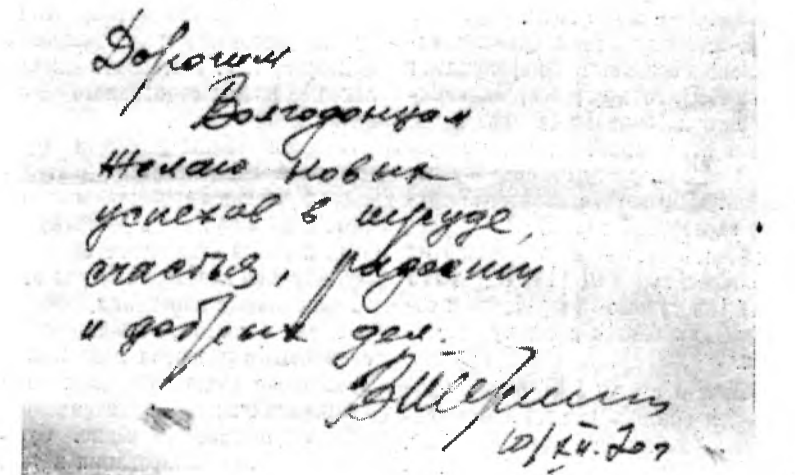 Дорогим
Волгодонцам
желаю новых
успехов в труде,
счастья, радости
и добрых дел.
10/XII.70г